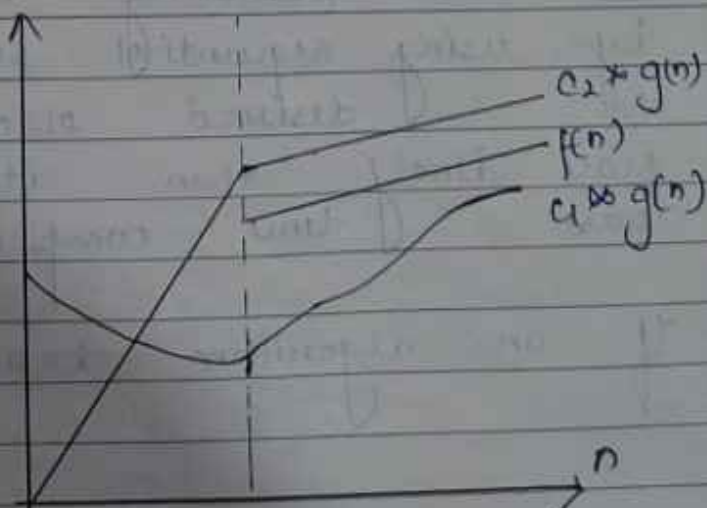 c2 * g(n)
f(n)
c1 * g(n)
n